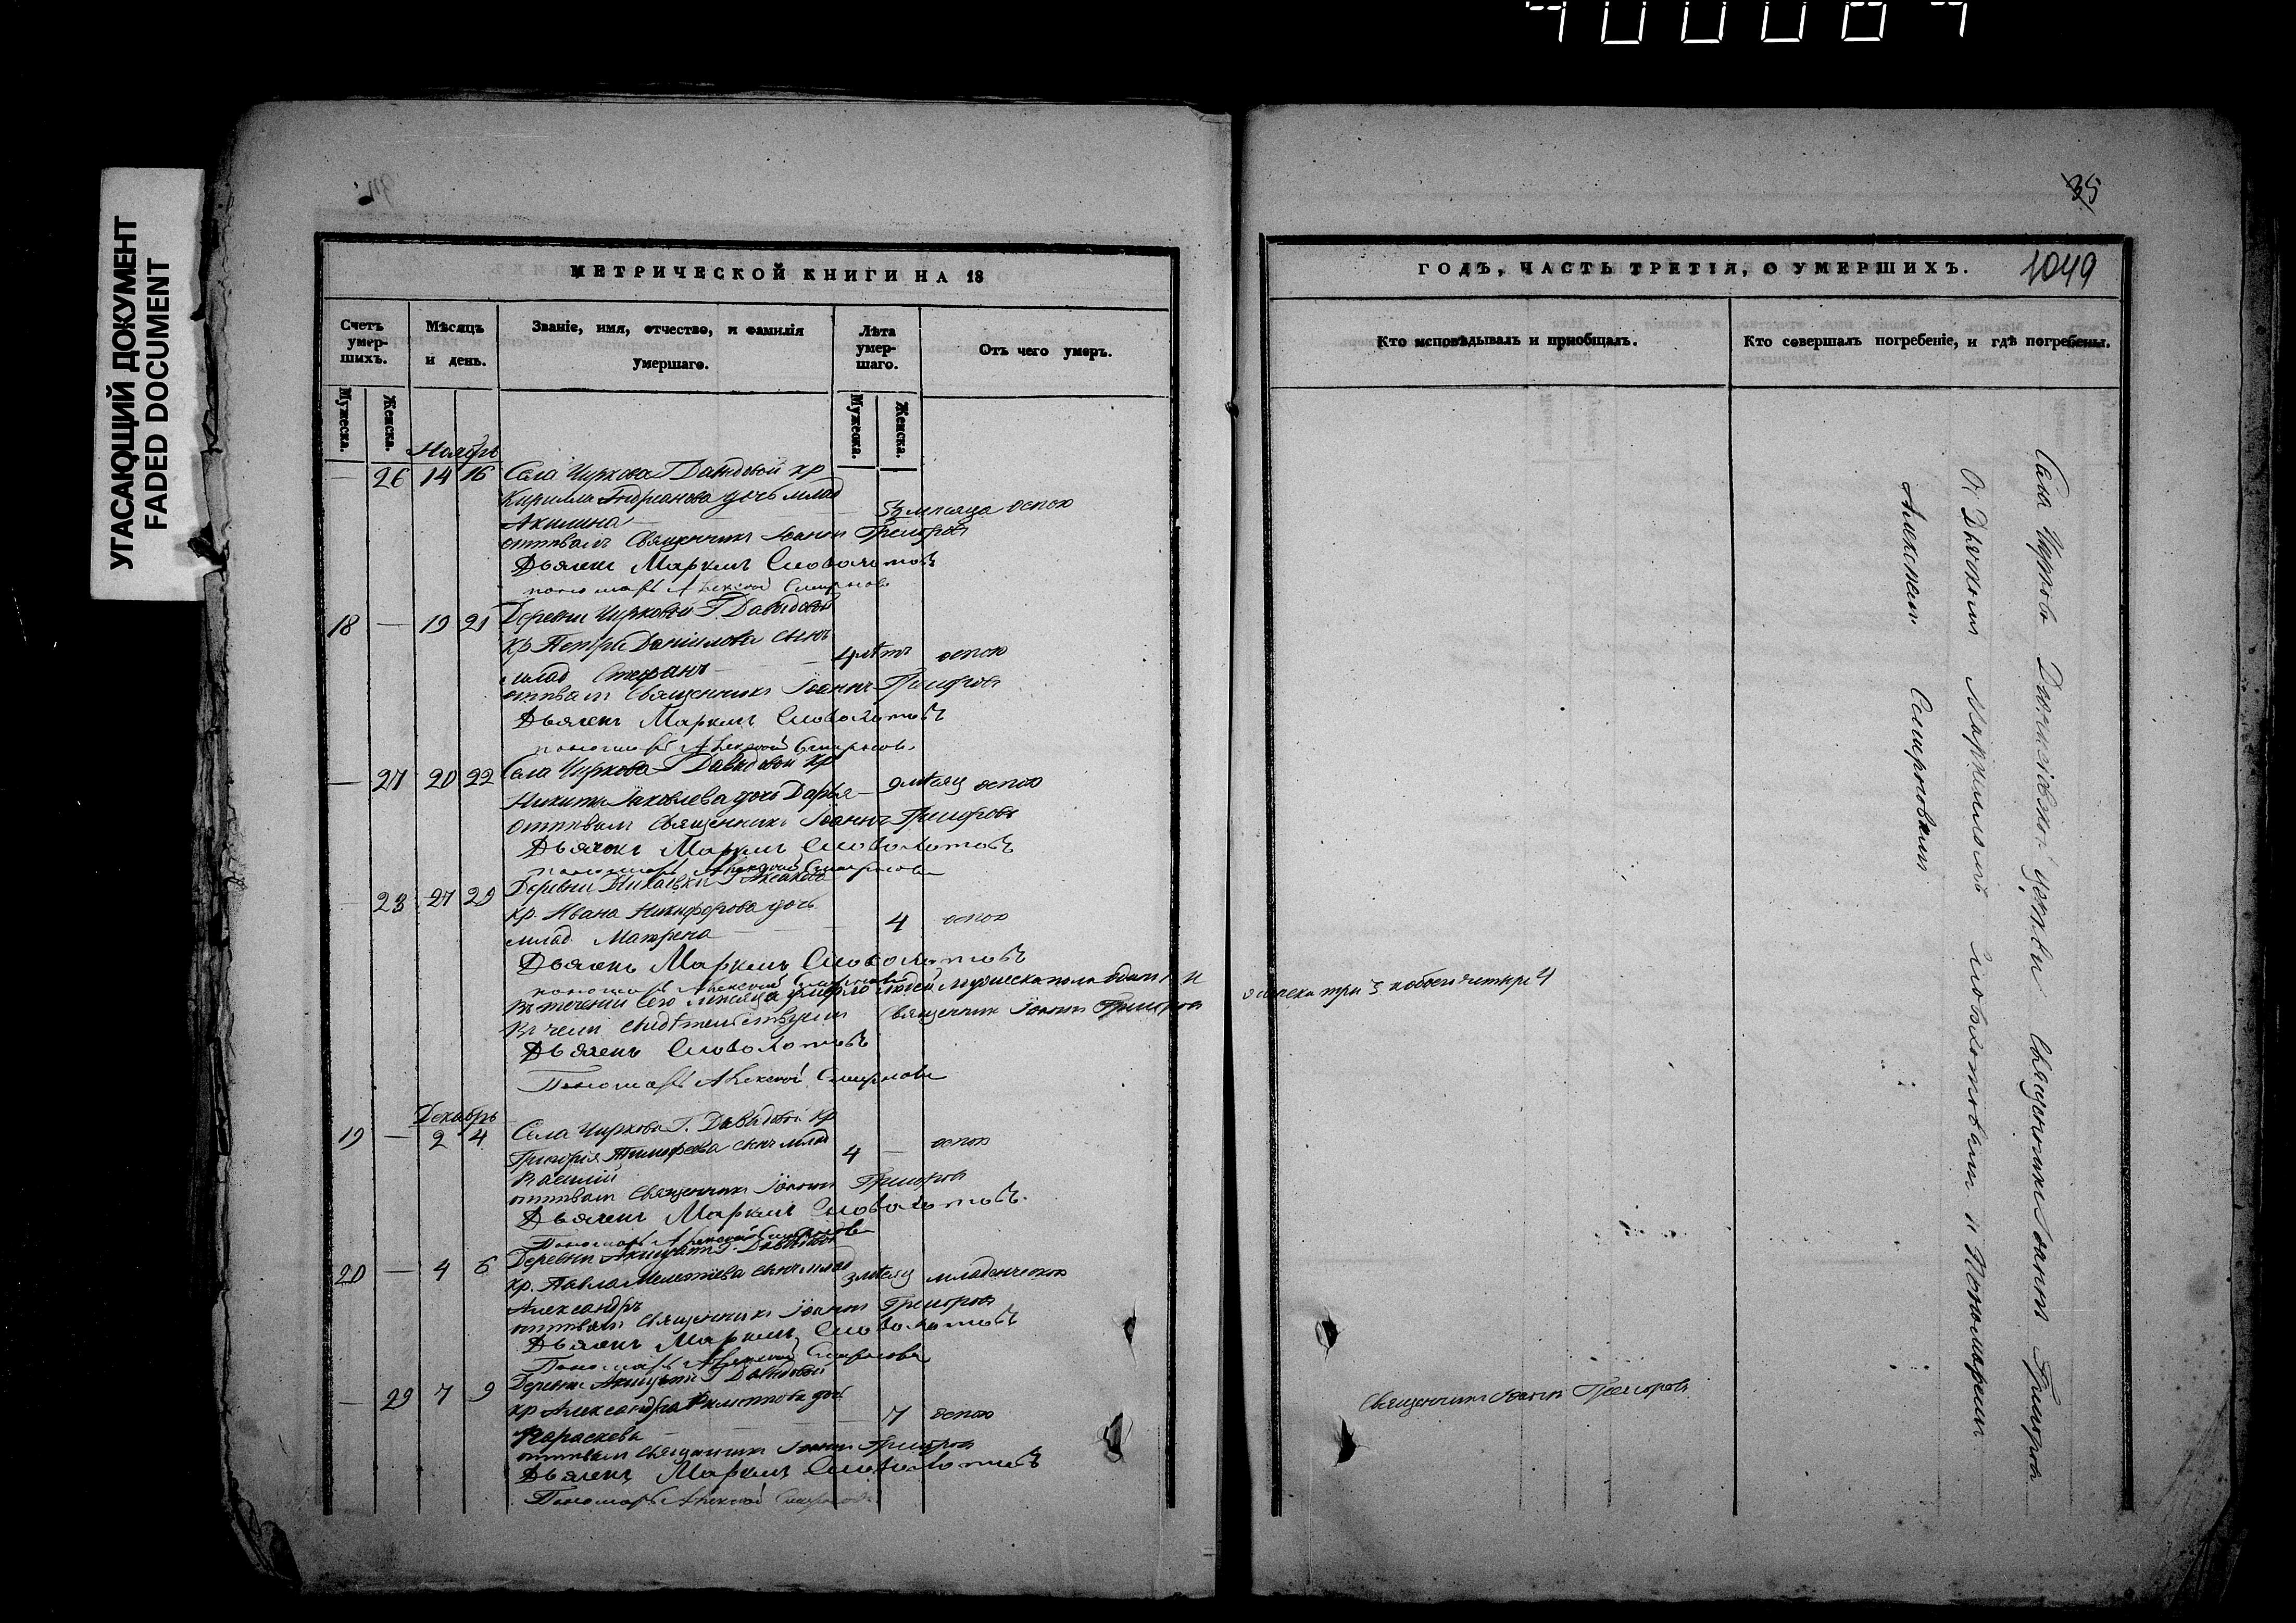 400084
УГАСАЮЩИЙ ДОКУМЕНТ
FADED DOCUMENT
МЕТРИЧЕСКОЙ КНИГИ НА 18
Счетъ умер-шихъ.
Мѣсяцъ и день.
Званіе, имя, отчество, и фамилія умершаго.
Лѣта умер-шаго.
Отъ чего умеръ.
Мужеска.
Женска.
Мужеска.
Женска.
Ноябрь
— 26 14 16 Села Чиркова Г Давыдовой кр
Кирилла Андреанова дочь млад
Акилина — месяца оспою
отпевалъ Священникъ Іоаннъ Григоровъ
Дьячекъ Маркелъ Словолотовъ
пономарь Алексей Смирновъ
18 — 19 21 Деревни Чирковой Г. Давыдовой
кр Петра Даниилова сынъ
млад Стефанъ — 4 летъ оспою
отпевалъ Священникъ Іоаннъ Григоровъ
Дьячекъ Маркелъ Словолотовъ
пономарь Алексей Смирновъ
— 27 20 22 Села Чиркова Г Давыдовой кр
Никиты Яковлева дочь Дарья — 9 месяц оспою
Отпевалъ Священникъ Іоаннъ Григоровъ
Дьячекъ Маркелъ Словолотовъ
пономарь Алексей Смирновъ
Деревни Г Аксакова
— 28 27 29 кр. Ивана Никифорова дочь
млад. Матрена — 4 оспою
Дьячекъ Маркелъ Словолотовъ
пономарь Алексей Смирновъ
Въ течении сего месяца умерло людей мужеска пола одинъ 1 и
женска три 3 а обоего четыре 4
Въ чемъ свидетельствуемъ Священникъ Іоаннъ Григоровъ
Дьячекъ Словолотовъ
Пономарь Алексей Смирновъ
Декабрь
19 — 2 4 Села Чиркова Г. Давыдовой кр
Григория Тимофеева сынъ млад
Василий 4 — оспою
отпевалъ Священникъ Іоаннъ Григоровъ
Дьячекъ Маркелъ Словолотовъ
Пономарь Алексей Смирновъ
Деревни Г. Давыдовой
20 — 4 6 кр. Павла сынъ млад
Александръ 3 месяц младенческою
отпевалъ Священникъ Іоаннъ Григоровъ
Дьячекъ Маркелъ Словолотовъ
Пономарь Алексей Смирновъ
Деревни Г Давыдовой
— 29 7 9 кр Александра дочь
Параскева — 7 оспою
отпевалъ Священникъ Іоаннъ Григоровъ
Дьячекъ Маркелъ Словолотовъ
Пономарь Алексей Смирновъ
35
ГОДЪ, ЧАСТЬ ТРЕТІЯ, О УМЕРШИХЪ.
1049
Кто исповѣдывалъ и пріобщалъ.
Кто совершалъ погребеніе, и гдѣ погребены.
Села Чиркова церкви Священникъ Іоаннъ Григоровъ
съ Дьячкомъ Маркеломъ Словолотовымъ и Пономаремъ
Алексеемъ Смирновымъ
Священникъ Іоаннъ Григоровъ